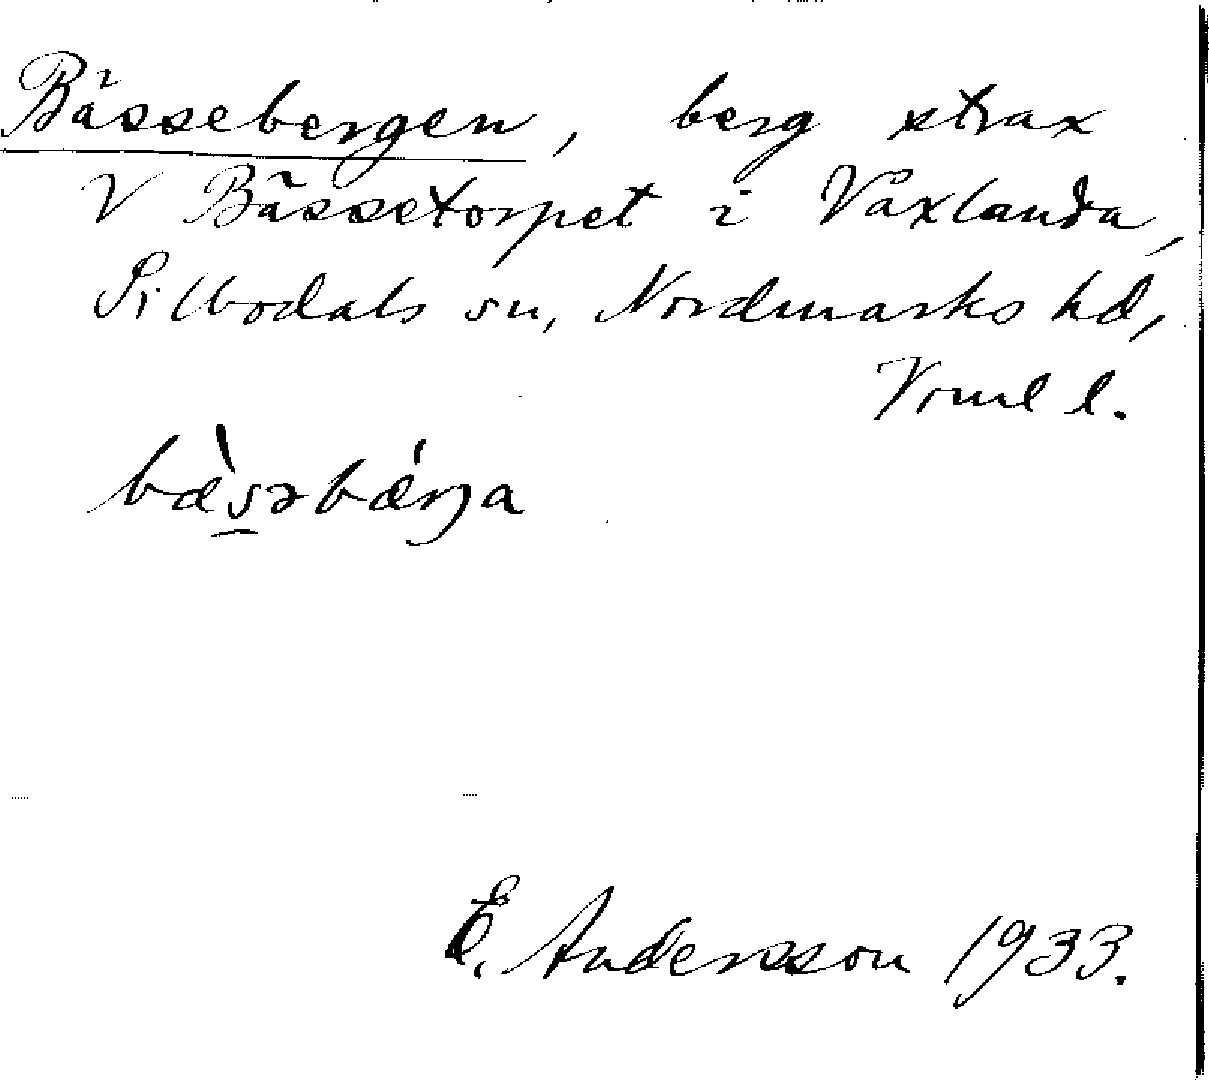 Bässebergen, berg strax
V Bässetorpet i Vaxlanda,
Silbodals sn, Nordmarks hd,
Vrml l.
bæ̀sə bærja
E. Andersson 1933.